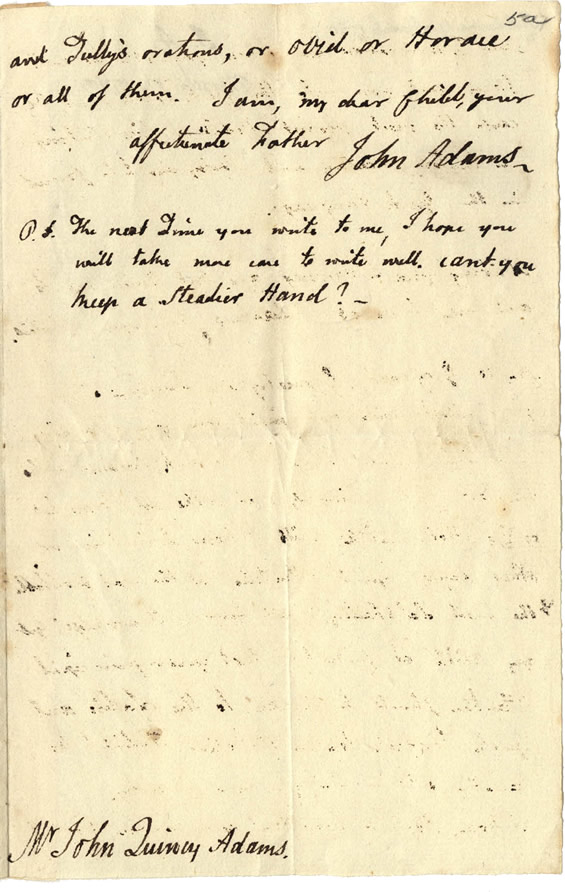 5a
and Tully's orations, or Ovid or Horace
or all of them. I am, my dear Child, your
affectionate Father
John Adams
P.S. The next Time you write to me, I hope you
will take more care to write well. cant you
keep a Steadier Hand?
Mr John Quincy Adams.